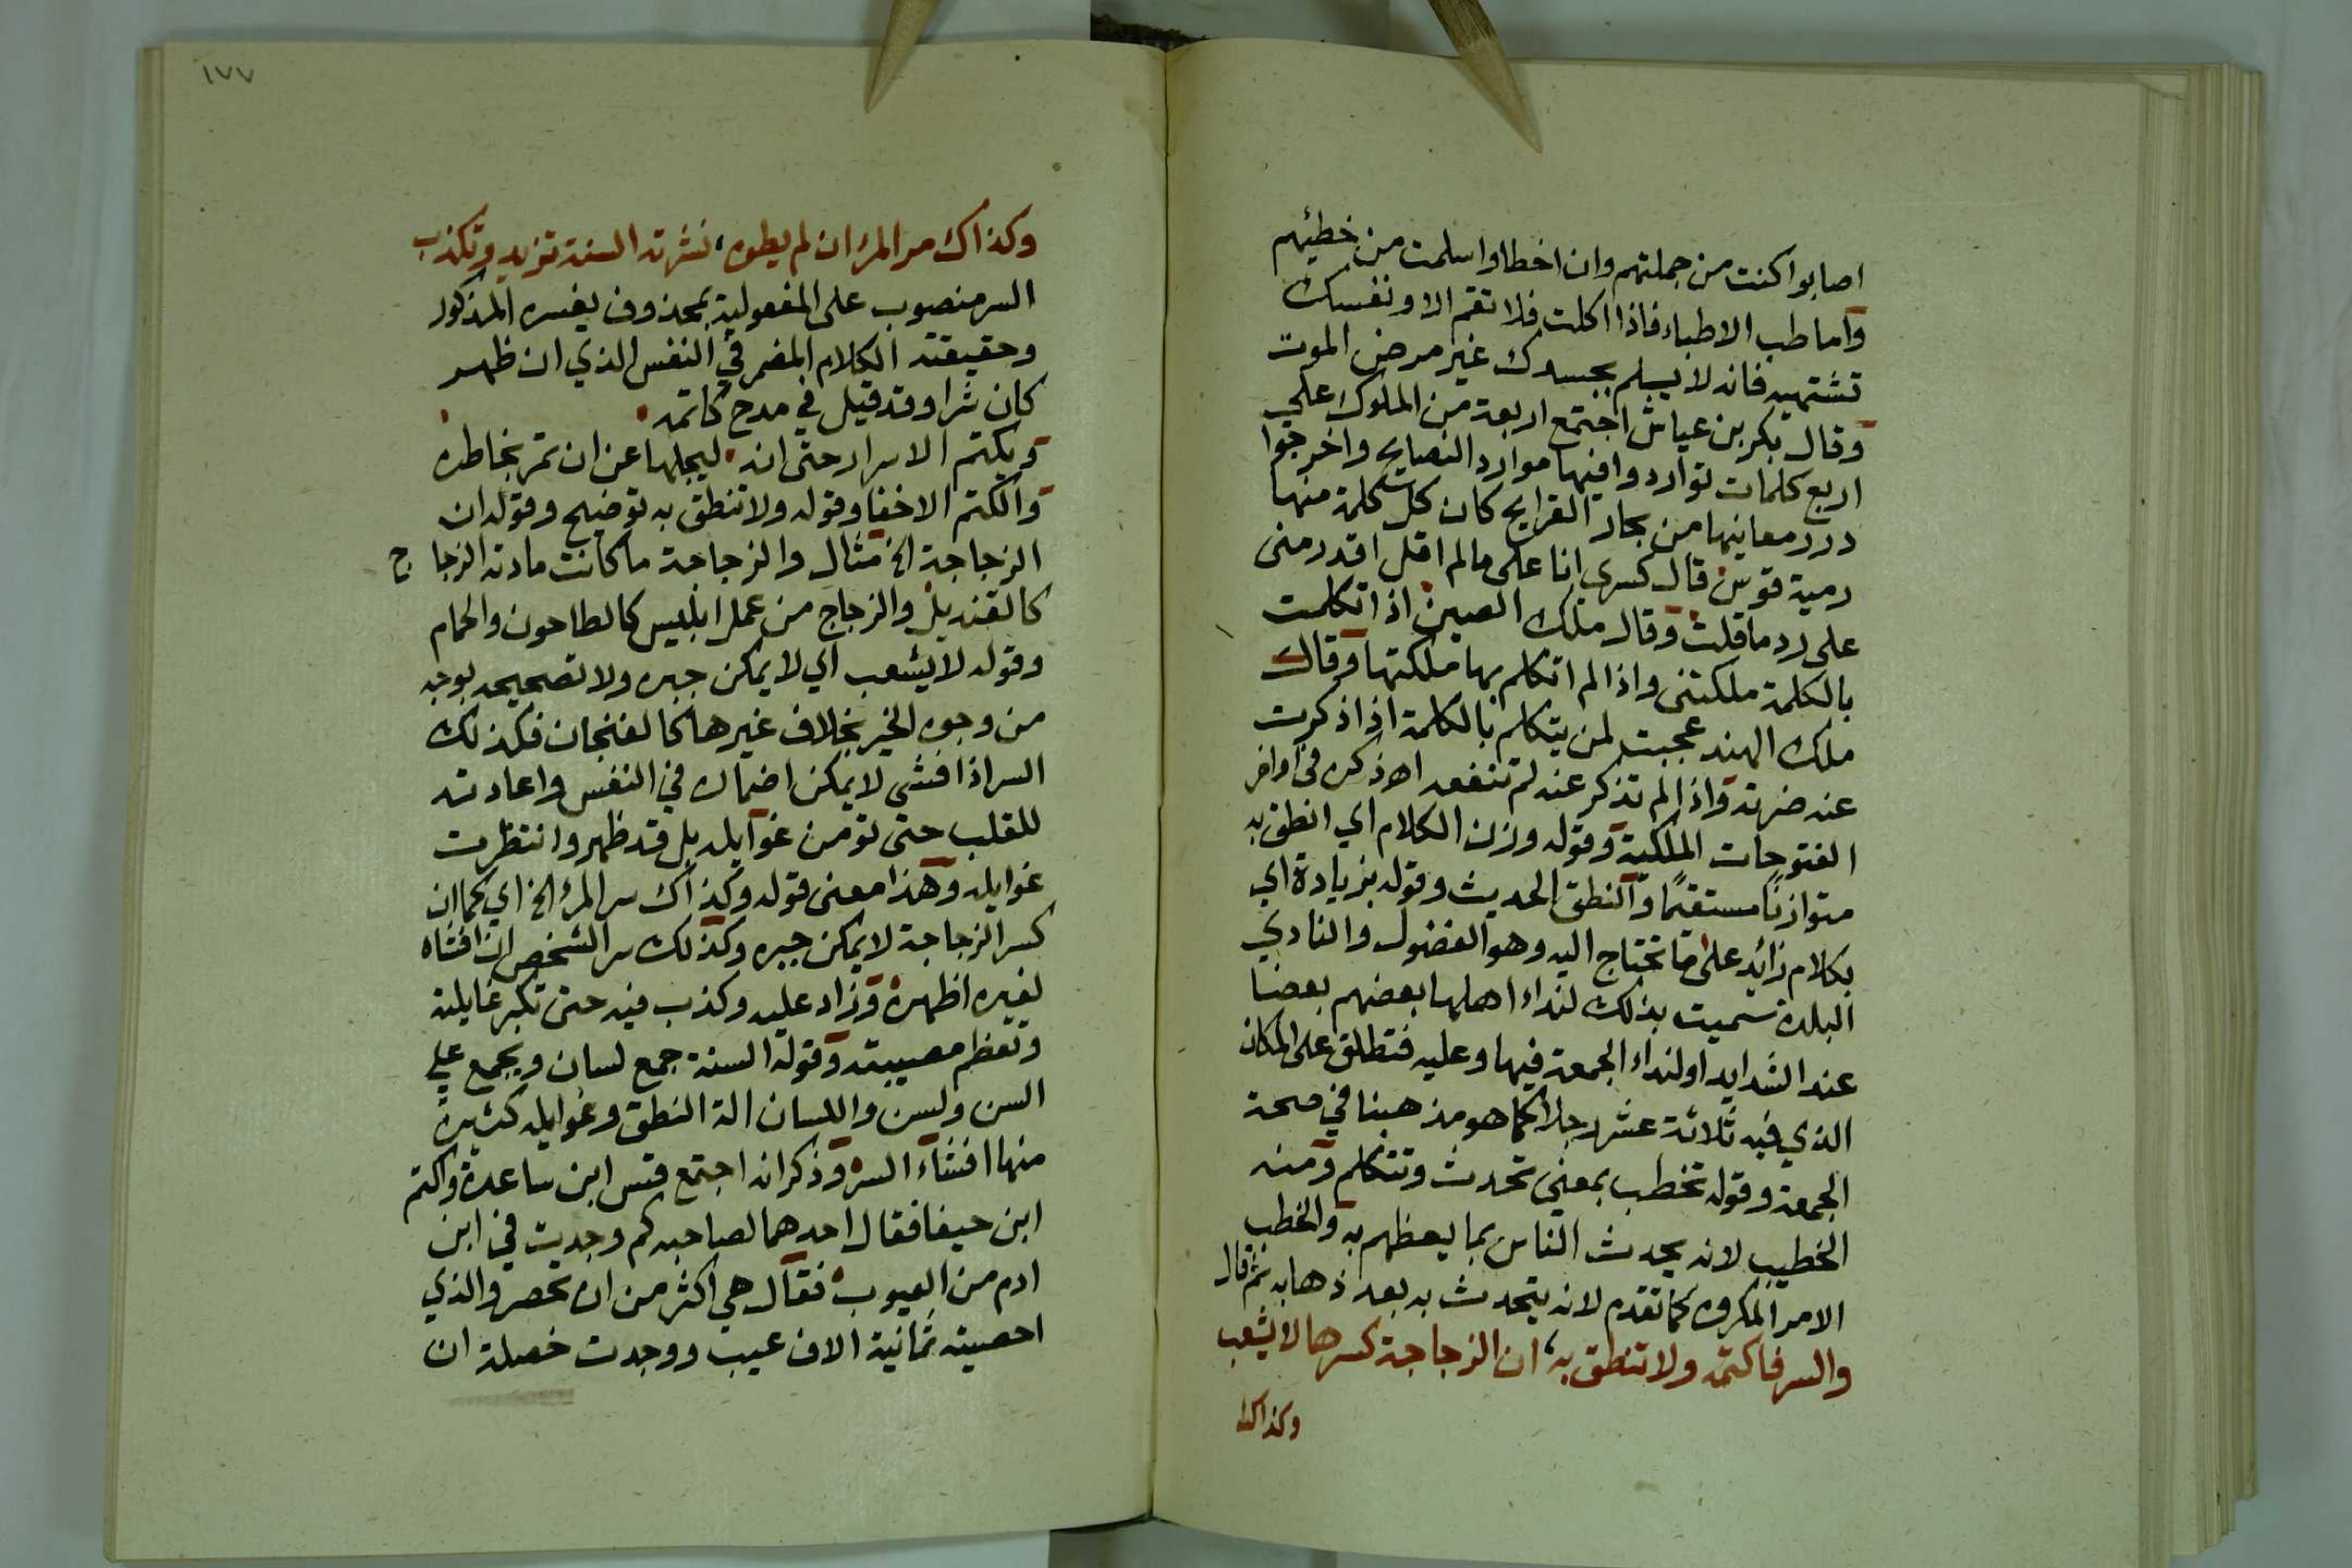 اصابوا كنت من جملتهم وان اخطاوا سلمت من خطيئهم
واما طب الاطباء فاذا اكلت فلا تقم الا ونفسك
تشتهيه فانه لا يسلم بجسدك غير مرض الموت
وقال بكر بن عياش اجتمع اربعة من الملوك على
اربع كلمات تواردوا فيها موارد النصايح واخرجوا
درر معانيها من بحار القرايح كان كل كلمة منها
رمية قوس قال كسرى انا على ما لم اقل اقدر منى
على رد ما قلت وقال ملك الصين اذا تكلمت
بالكلمة ملكتنى واذا لم اتكلم بها ملكتها وقال
ملك الهند عجبت لمن يتكلم بالكلمة اذا ذكرت
عنه ضرته واذا لم تذكر عنه لم تنفعه اه ذكره فى اواخر
الفتوحات الملكية وقوله وزن الكلام اي انطق به
متوازنًا مستقيمًا والنطق الحديث وقوله بزيادة اي
بكلام زائد على ما تحتاج اليه وهو الفضول والنادي
البلدة سميت بذلك لنداء اهلها بعضهم بعضا
عند الشدايد او لنداء الجمعة فيها وعليه فتطلق على المكان
الذي فيه ثلاثة عشر رجلا كما هو مذهبنا في صحة
الجمعة وقوله تخطب بمعنى تحدث وتتكلم ومنه
الخطيب لانه يحدث الناس بما يعظهم به والخطب
الامر المكروه كما تقدم لانه يتحدث به بعد ذهابه ثم قال
والسر فاكتمه ولا تنطق به، ان الزجاجة كسرها لا يشعب
وكذاك
١٧٧
وكذاك سر المرء ان لم يطوه، نشرته السنة تزيد وتكذب
السر منصوب على المفعولية بمحذوف يفسره المذكور
وحقيقته الكلام المضمر في النفس الذي ان ظهر
كان شرا وقد قيل في مدح كاتمه
ويكتم الاسرار حتى انه ليجلها عن ان تمر بخاطره
والكتم الاخفا وقوله ولا تنطق به توضيح وقوله ان
الزجاجة الخ مثال والزجاجة ما كانت مادته الزجاج
كالقنديل والزجاج من عمل ابليس كالطاحون والحمام
وقوله لا يشعب اي لا يمكن جبره ولا تصحيحه بوجه
من وجوه الخير بخلاف غيرها كالفنجان فكذلك
السر اذا افشى لا يمكن اضماره في النفس واعادته
للقلب حتى تومن غوايله بل قد ظهر وانتظرت
غوايله وهذا معنى قوله وكذاك سر المرء الخ اي كما ان
كسر الزجاجة لا يمكن جبره وكذلك سر الشخص ان افشاه
لغيره اظهره وزاد عليه وكذب فيه حتى تكبر غايلته
وتعظم مصيبته وقوله السنة جمع لسان ويجمع على
السن ولسن واللسان الة النطق وغوايله كثيرة
منها افشاء السر وذكر انه اجتمع قس ابن ساعدة واكتم
ابن حيفا فقال احدهما لصاحبه كم وجدت في ابن
ادم من العيوب فقال هي اكثر من ان تحصر والذي
احصيته ثمانية الاف عيب ووجدت خصلة ان